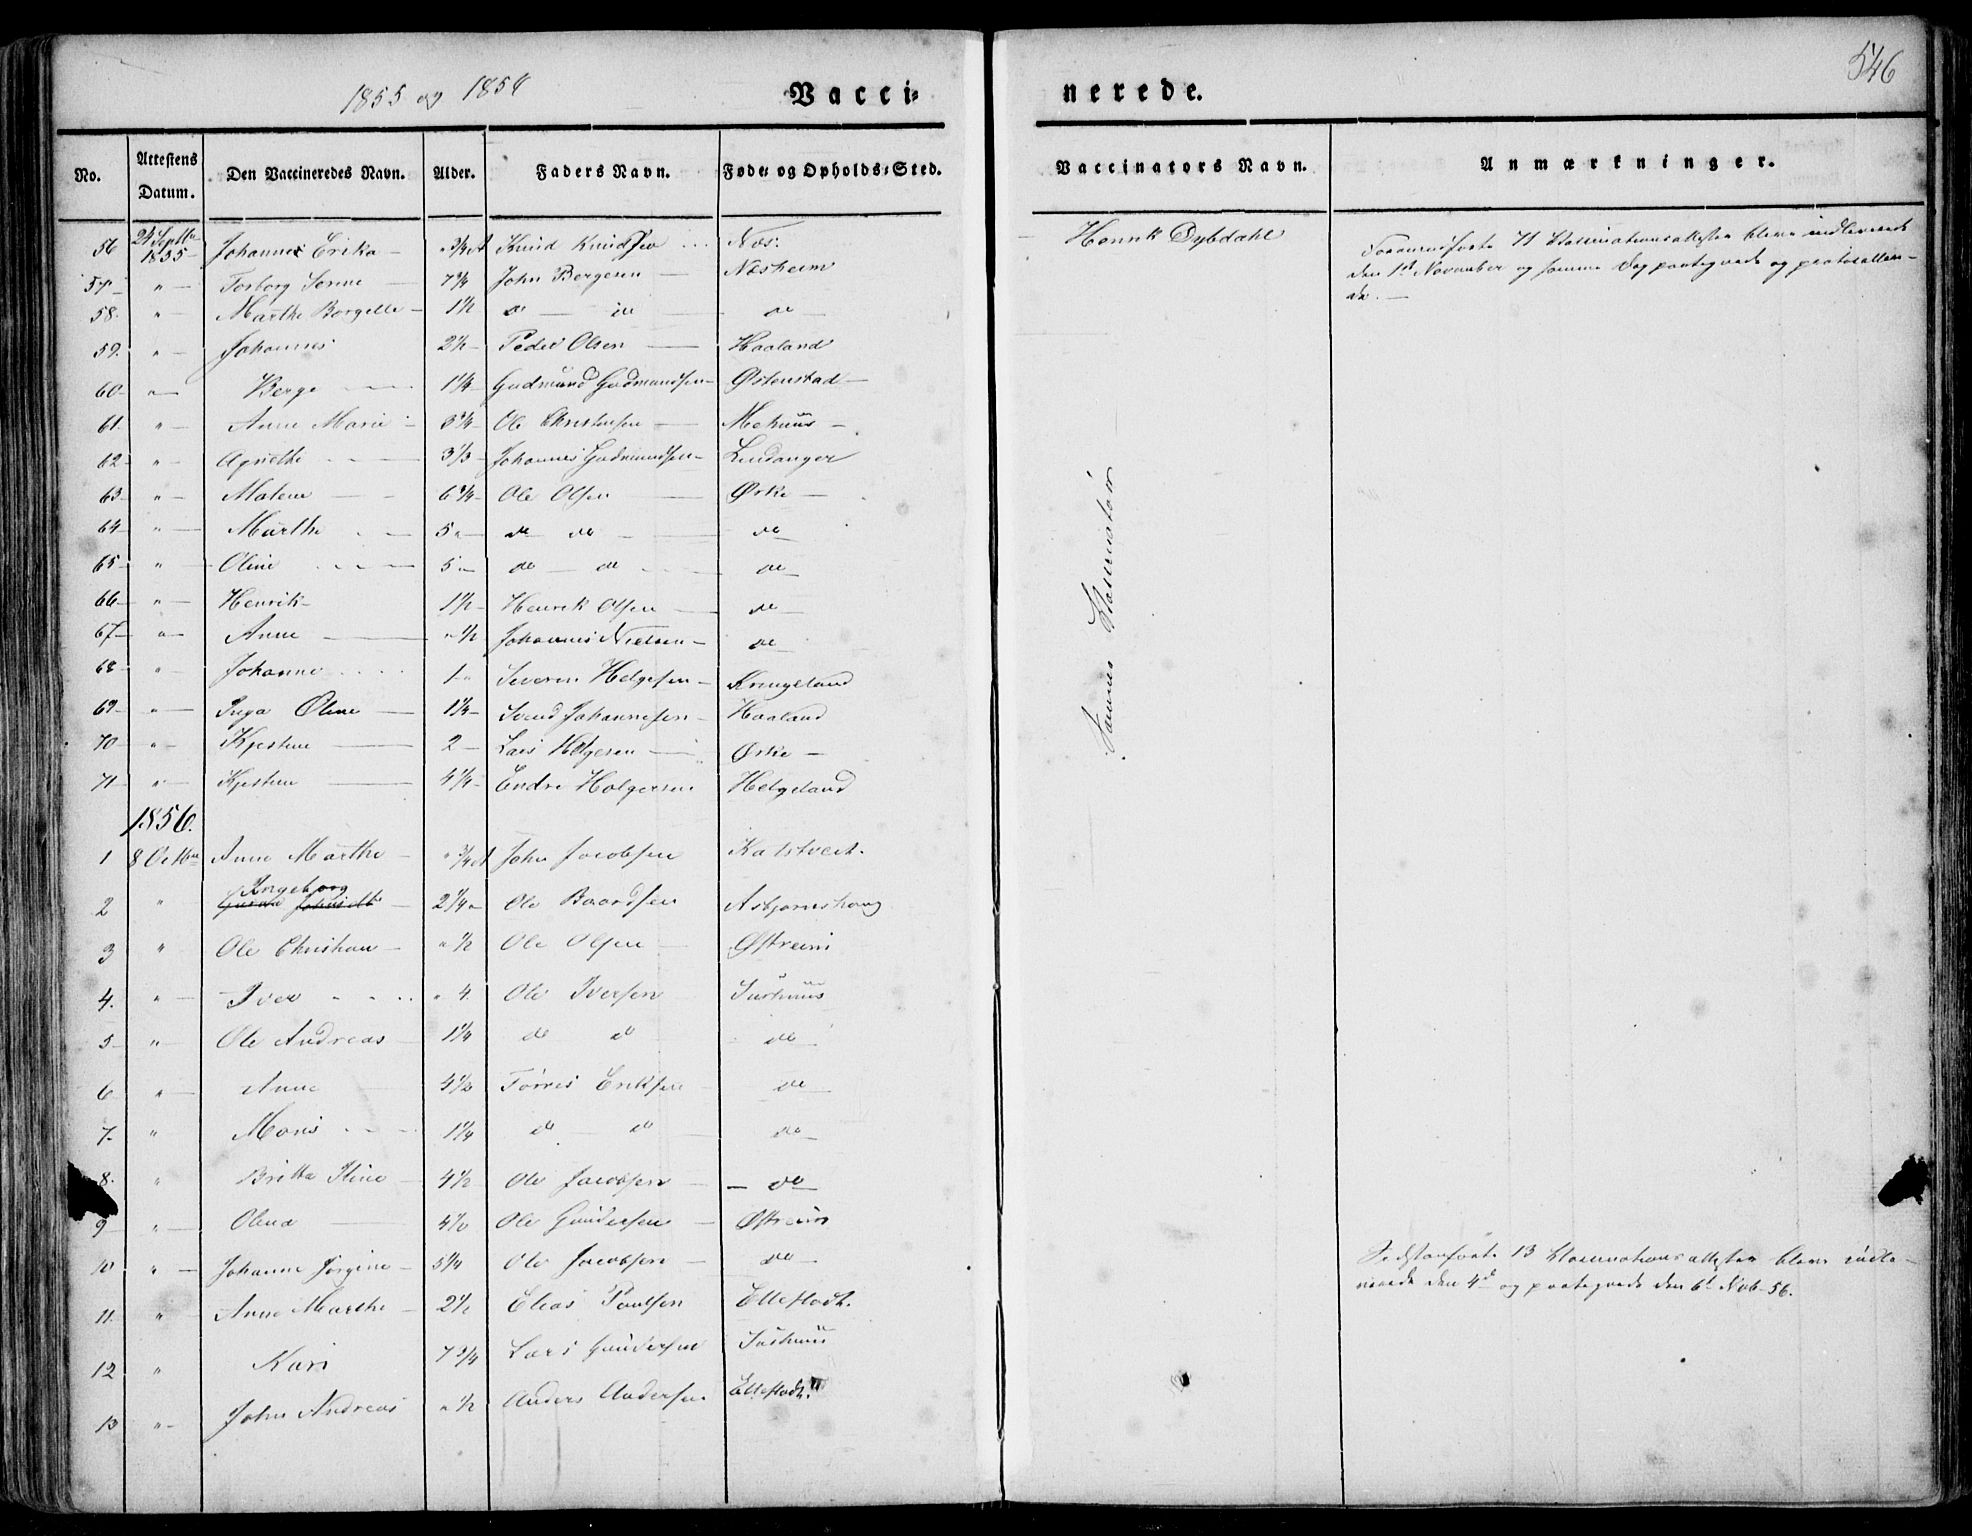 546
1855 og 1856
Vacci-
nerede.
No. Attestens Datum. Den Vaccineredes Navn. Alder. Faders Navn. Føde- og Opholds-Sted. Vaccinators Navn. Anmærkninger.
56 24 Septbr 1855 Johanne Erika " 3/4 A Knud Knudsen Næs. Henrik Dybdahl
57 " Torborg Serine 7 3/4 John Bergesen Næsheim
58. " Marthe Borgelle 1 1/2 do do do
59. " Johannes 2 1/2 Peder Olsen Haaland
60 " Berge 1 1/4 Gudmund Gudmundsen Østenstad
61 " Anne Marie Ole Christensen Mehuus
62 " Agnethe 3 1/3 Johannes Gudmundsen Lindanger
63 " Malene 6 3/4 Ole Olsen Ørke
64 " Marthe 5 " do do do
65 " Oline 5 " do do do
66 " Henrik 1 1/2 Henrik Olsen do
67 " Anne " 1/2 Johannes Nielsen do
68 " Johanne 1 " Severin Helgesen Kringeland
69 " Inga Oline 1 1/4 Svend Johannesen Haaland
70 " Kjestine 2 Lars Helgesen Ørke
71 " Kjestine 4 1/4 Endre Holgersen Helgeland
1856.
1 8 Octbr Anne Marthe " 3/4 A John Jacobsen Katstveit.
2 " Ingeborg 2 1/4 " Ole Baardsen Asbjørnshoug
3 " Ole Christian " 1/2 Ole Olsen Østreim
4. " Iver " 4. Ole Iversen
5 " Ole Andreas 1 1/4 do do do
6 " Anne 4 1/2 Tørres Eriksen do
7 " 1 1/4 do do do
8. " Britta Iline 4 1/2 Ole Jacobsen do
9 " Olena 4 1/2 Ole Gundersen Østreim
10 " Johanne Jørgine 5 1/4 Ole Jacobsen do
11. " Anne Marthe 2 1/2 Elias Paulsen
12 " Kari 7 3/4 Lars Gundersen
13 " John Andreas " 1/2 Anders Andersen
Samme Vaccinatør
Forananførte 71 Vaccinationsattester bleve indleverede
den 1st November og samme Dag paategnede og protocolle-
de.
Sidstanførte 13 Vaccinationsattester bleve indle-
verede den 4de og paategnede den 6t Nvb 56.